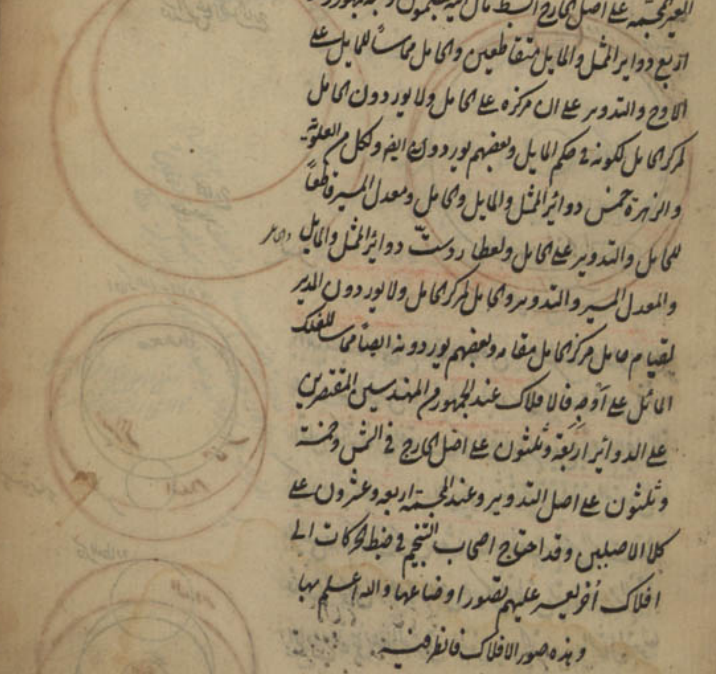 الغير المجسمة على اصل الخارج
اربع دوائر الممثل والمايل متقاطعين والحامل مماسا للمايل على
الاوج والتدوير على ان مركزه على الحامل ولا يوردون الحامل
لمركز الحامل لكونه في حكم المايل وبعضهم يوردونه ايضا ولكل من العلوية
والزهرة خمس دوائر الممثل والمايل والحامل ومعدل المسير قاطعا
للحامل والتدوير على الحامل ولعطارد ست دوائر الممثل والمايل والحامل
والمعدل المسير والتدوير والحامل لمركز الحامل ولا يوردون المدير
لقيام حامل مركز الحامل مقامه وبعضهم يوردونه ايضا مماسا للفلك
المائل على اوجه فالافلاك عند الجمهور من المهندسين المقتصرين
على الدوائر اربعة وثلثون على اصل الخارج في الشمس وخمسة
وثلثون على اصل التدوير وعند المجسمة اربعة وعشرون على
كلا الاصلين وقد احتاج اصحاب التنجيم في ضبط الحركات الى
افلاك أخر يعسر عليهم تصور اوضاعها والله اعلم بها
وهذه صور الافلاك فانظر فيه